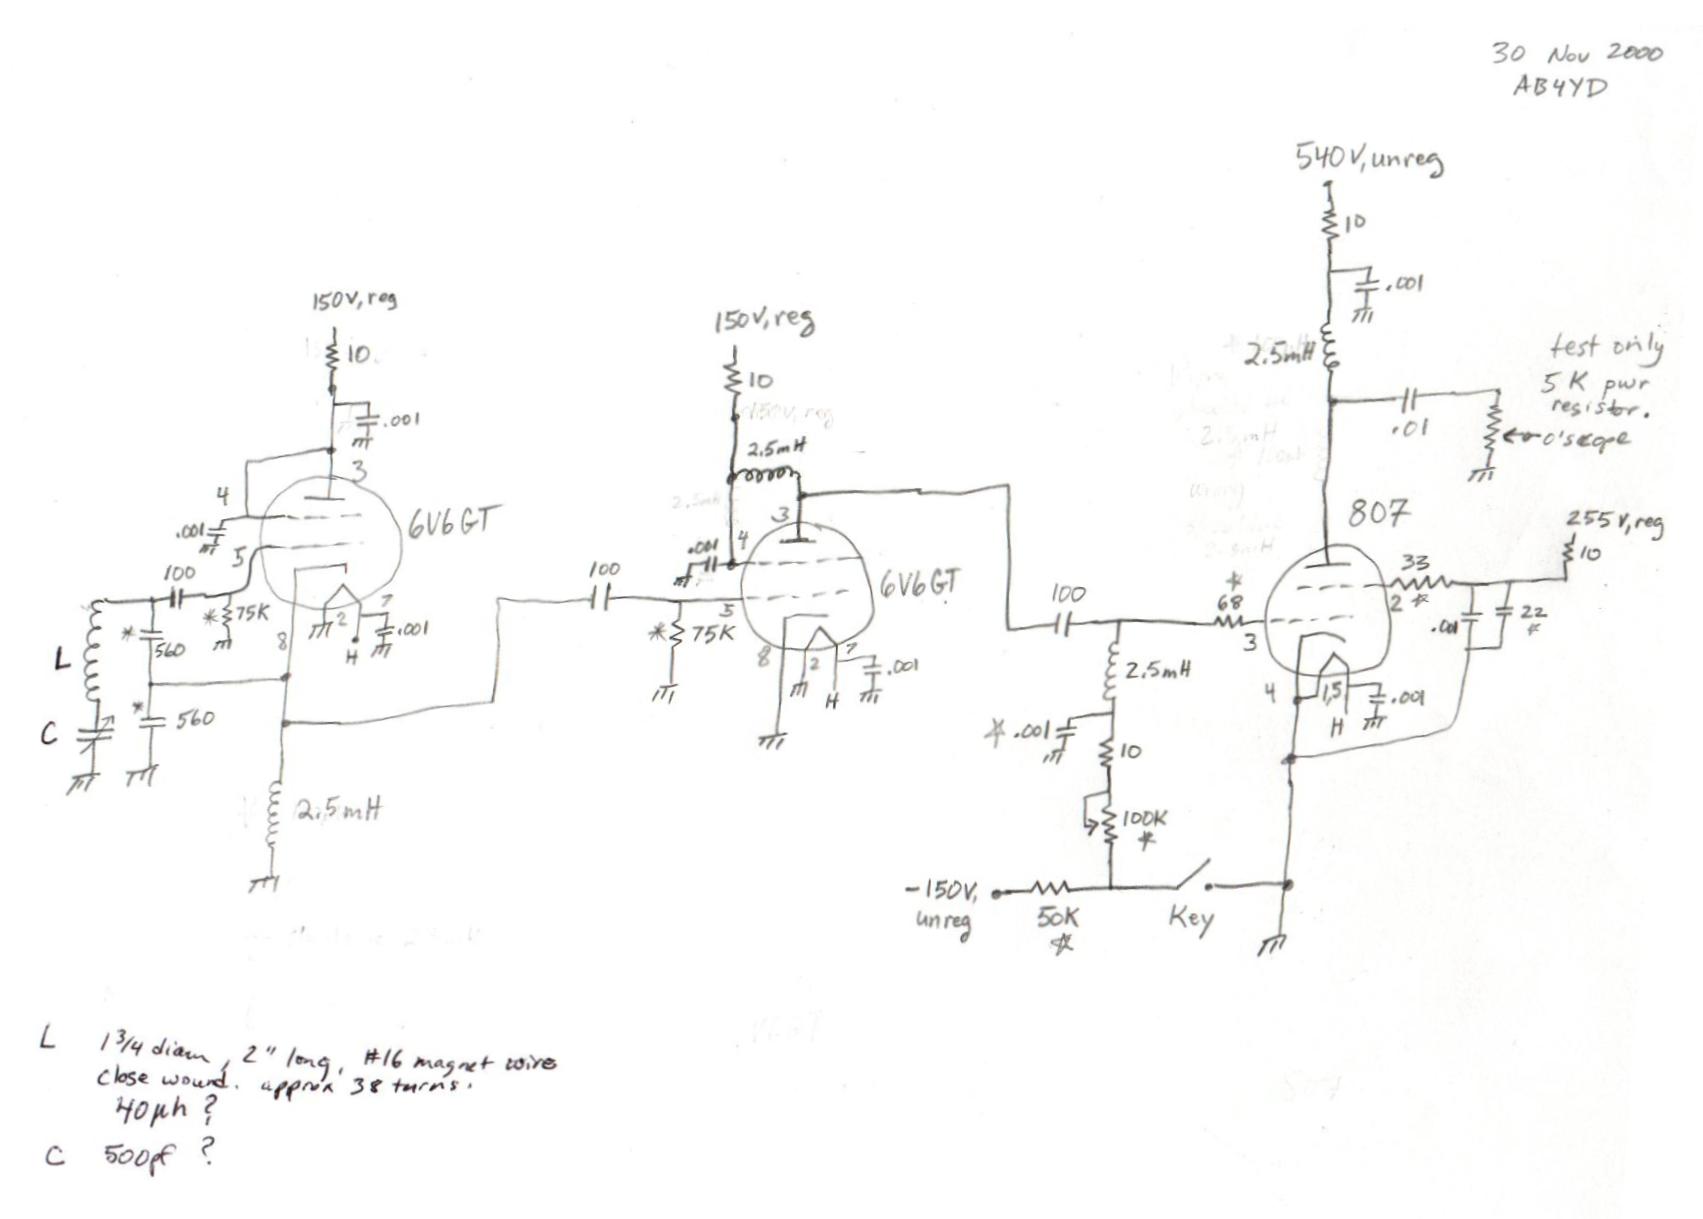 30 Nov 2000
AB4YD
540V, unreg
10
.001
2.5mH
test only
5K pwr
resistor.
o'scope
.01
150V, reg
10
.001
3
4
.001
5
6V6GT
100
* 75K
* 560
L
8
2
7
.001
H
* 560
C
2.5mH
150V, reg
10
2.5mH
3
.001
4
6V6GT
100
5
* 75K
8
2
7
.001
H
807
255V, reg
10
33
*
2
*
68
3
.001
22
*
100
2.5mH
4
1,5
.001
H
* .001
10
100K
*
-150V,
unreg
50K
*
Key
L 1 3/4 diam, 2" long, #16 magnet wire
close wound. approx 38 turns.
40µh ?
C 500pf ?